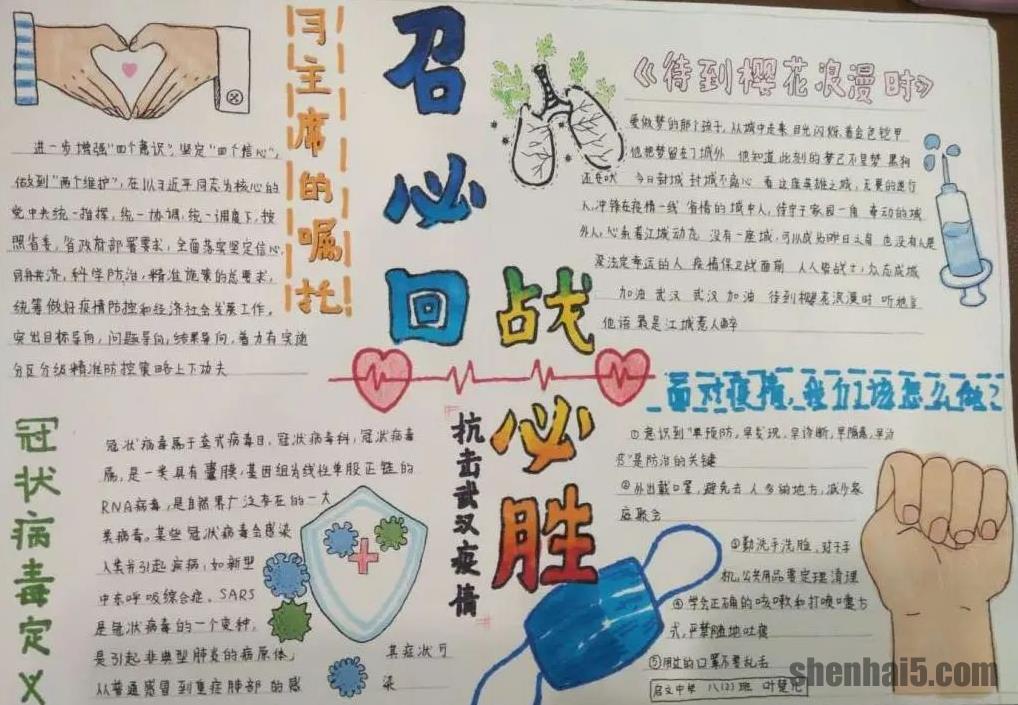 习主席的嘱托
进一步增强"四个意识",坚定"四个信心",
做到"两个维护",在以习近平同志为核心的
党中央统一指挥,统一协调,统一调度下,按
照省委,省政府部署要求,全面落实坚定信心,
同舟共济,科学防治,精准施策的总要求,
统筹做好疫情防控和经济社会发展工作,
突出目标导向,问题导向,结果导向,着力有实施
分区分级精准防控策略上下功夫
召必回
战必胜
抗击武汉疫情
《待到樱花浪漫时》
爱做梦的那个孩子,从城中走来 目光闪烁,着金色铠甲
他把梦留在了城外 他知道此刻的梦已不是梦
今日封城 封城不离心 看这座英雄之城,无畏的逆行
人,冲锋在疫情一线 省情的城中人,信守于家园一角 牵动的城
外人,心系着江城动态 没有一座城,可以成为昨日之岛 也没有人是
深法定幸运的人 疫情保卫战面前 人人皆战士,众志成城
加油 武汉 武汉 加油 待到樱花浪漫时 听他言
他语 最是江城惹人醉
冠状病毒定义
冠状病毒属于套式病毒目,冠状病毒科,冠状病毒
属,是一类具有囊膜,基因组为线性单股正链的
RNA病毒,是自然界广泛存在的一大
类病毒。某些冠状病毒会感染
人类并引起疾病,如新型
中东呼吸综合症,SARS
是冠状病毒的一个变种,
是引起非典型肺炎的病原体, 其症状可
从普通感冒到重症肺部的感染
面对疫情,我们该怎么做?
①意识到"早预防,早发现,早诊断,早隔离,早治
疗"是防治的关键
②外出戴口罩,避免去人多的地方,减少家
庭聚会
③勤洗手洗脸,对于手
机,公共用品要定理清理
④学会正确的咳嗽和打喷嚏方
式,严禁随地吐痰
⑤用过的口罩不要乱丢
启文中学 八(2)班 叶楚
shenhai5.com